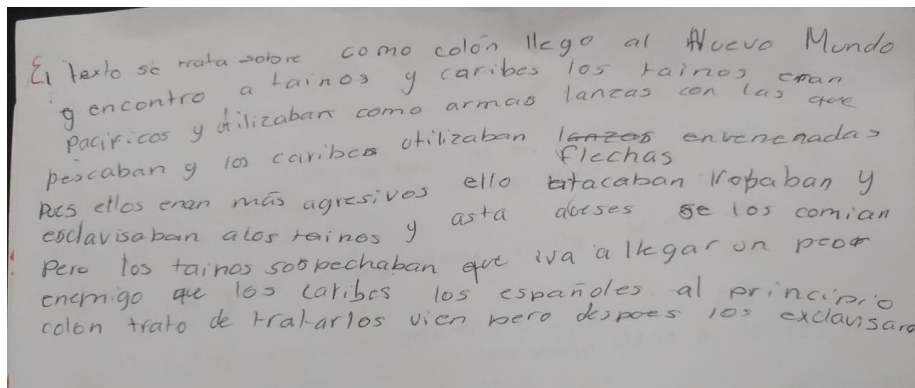 El texto se trata sobre como colón llego al Nuevo Mundo
y encontro a tainos y caribes los tainos eran
pacificos y utilizaban como armas lanzas con las que
pescaban y los caribes utilizaban lanzas envenenadas
flechas
pues ellos eran más agresivos ello atacaban robaban y
esclavisaban a los tainos y asta aveses se los comian
Pero los tainos sospechaban que iva a llegar un peor
enemigo que los caribes los españoles al principio
colon trato de tratarlos vien pero despues los exclavisaro